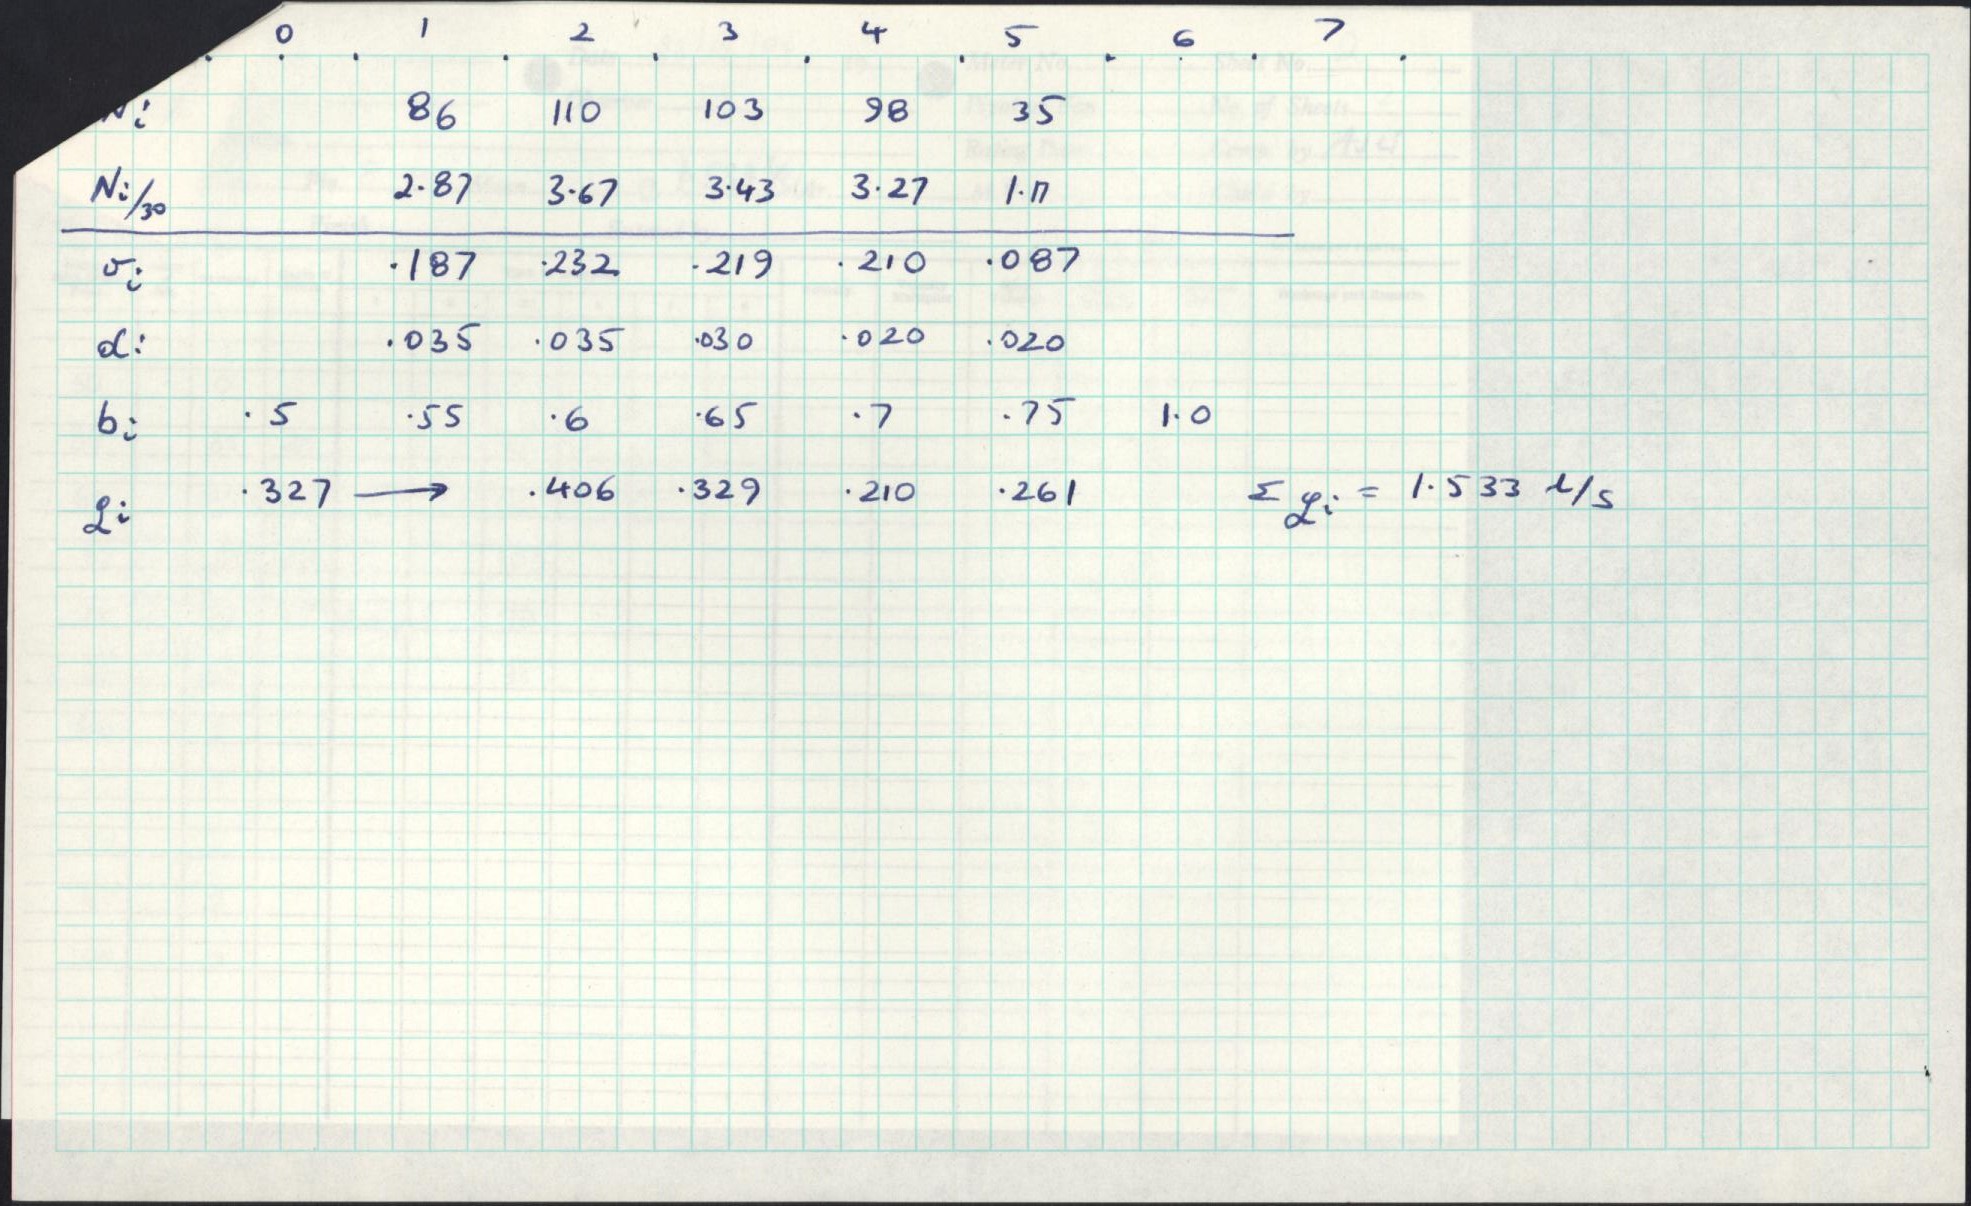 0 1 2 3 4 5 6 7
Ni 86 110 103 98 35
Ni/30 2.87 3.67 3.43 3.27 1.17
vi .187 .232 .219 .210 .087
di .035 .035 .030 .020 .020
bi .5 .55 .6 .65 .7 .75 1.0
qi .327 → .406 .329 .210 .261 Σ qi = 1.533 l/s